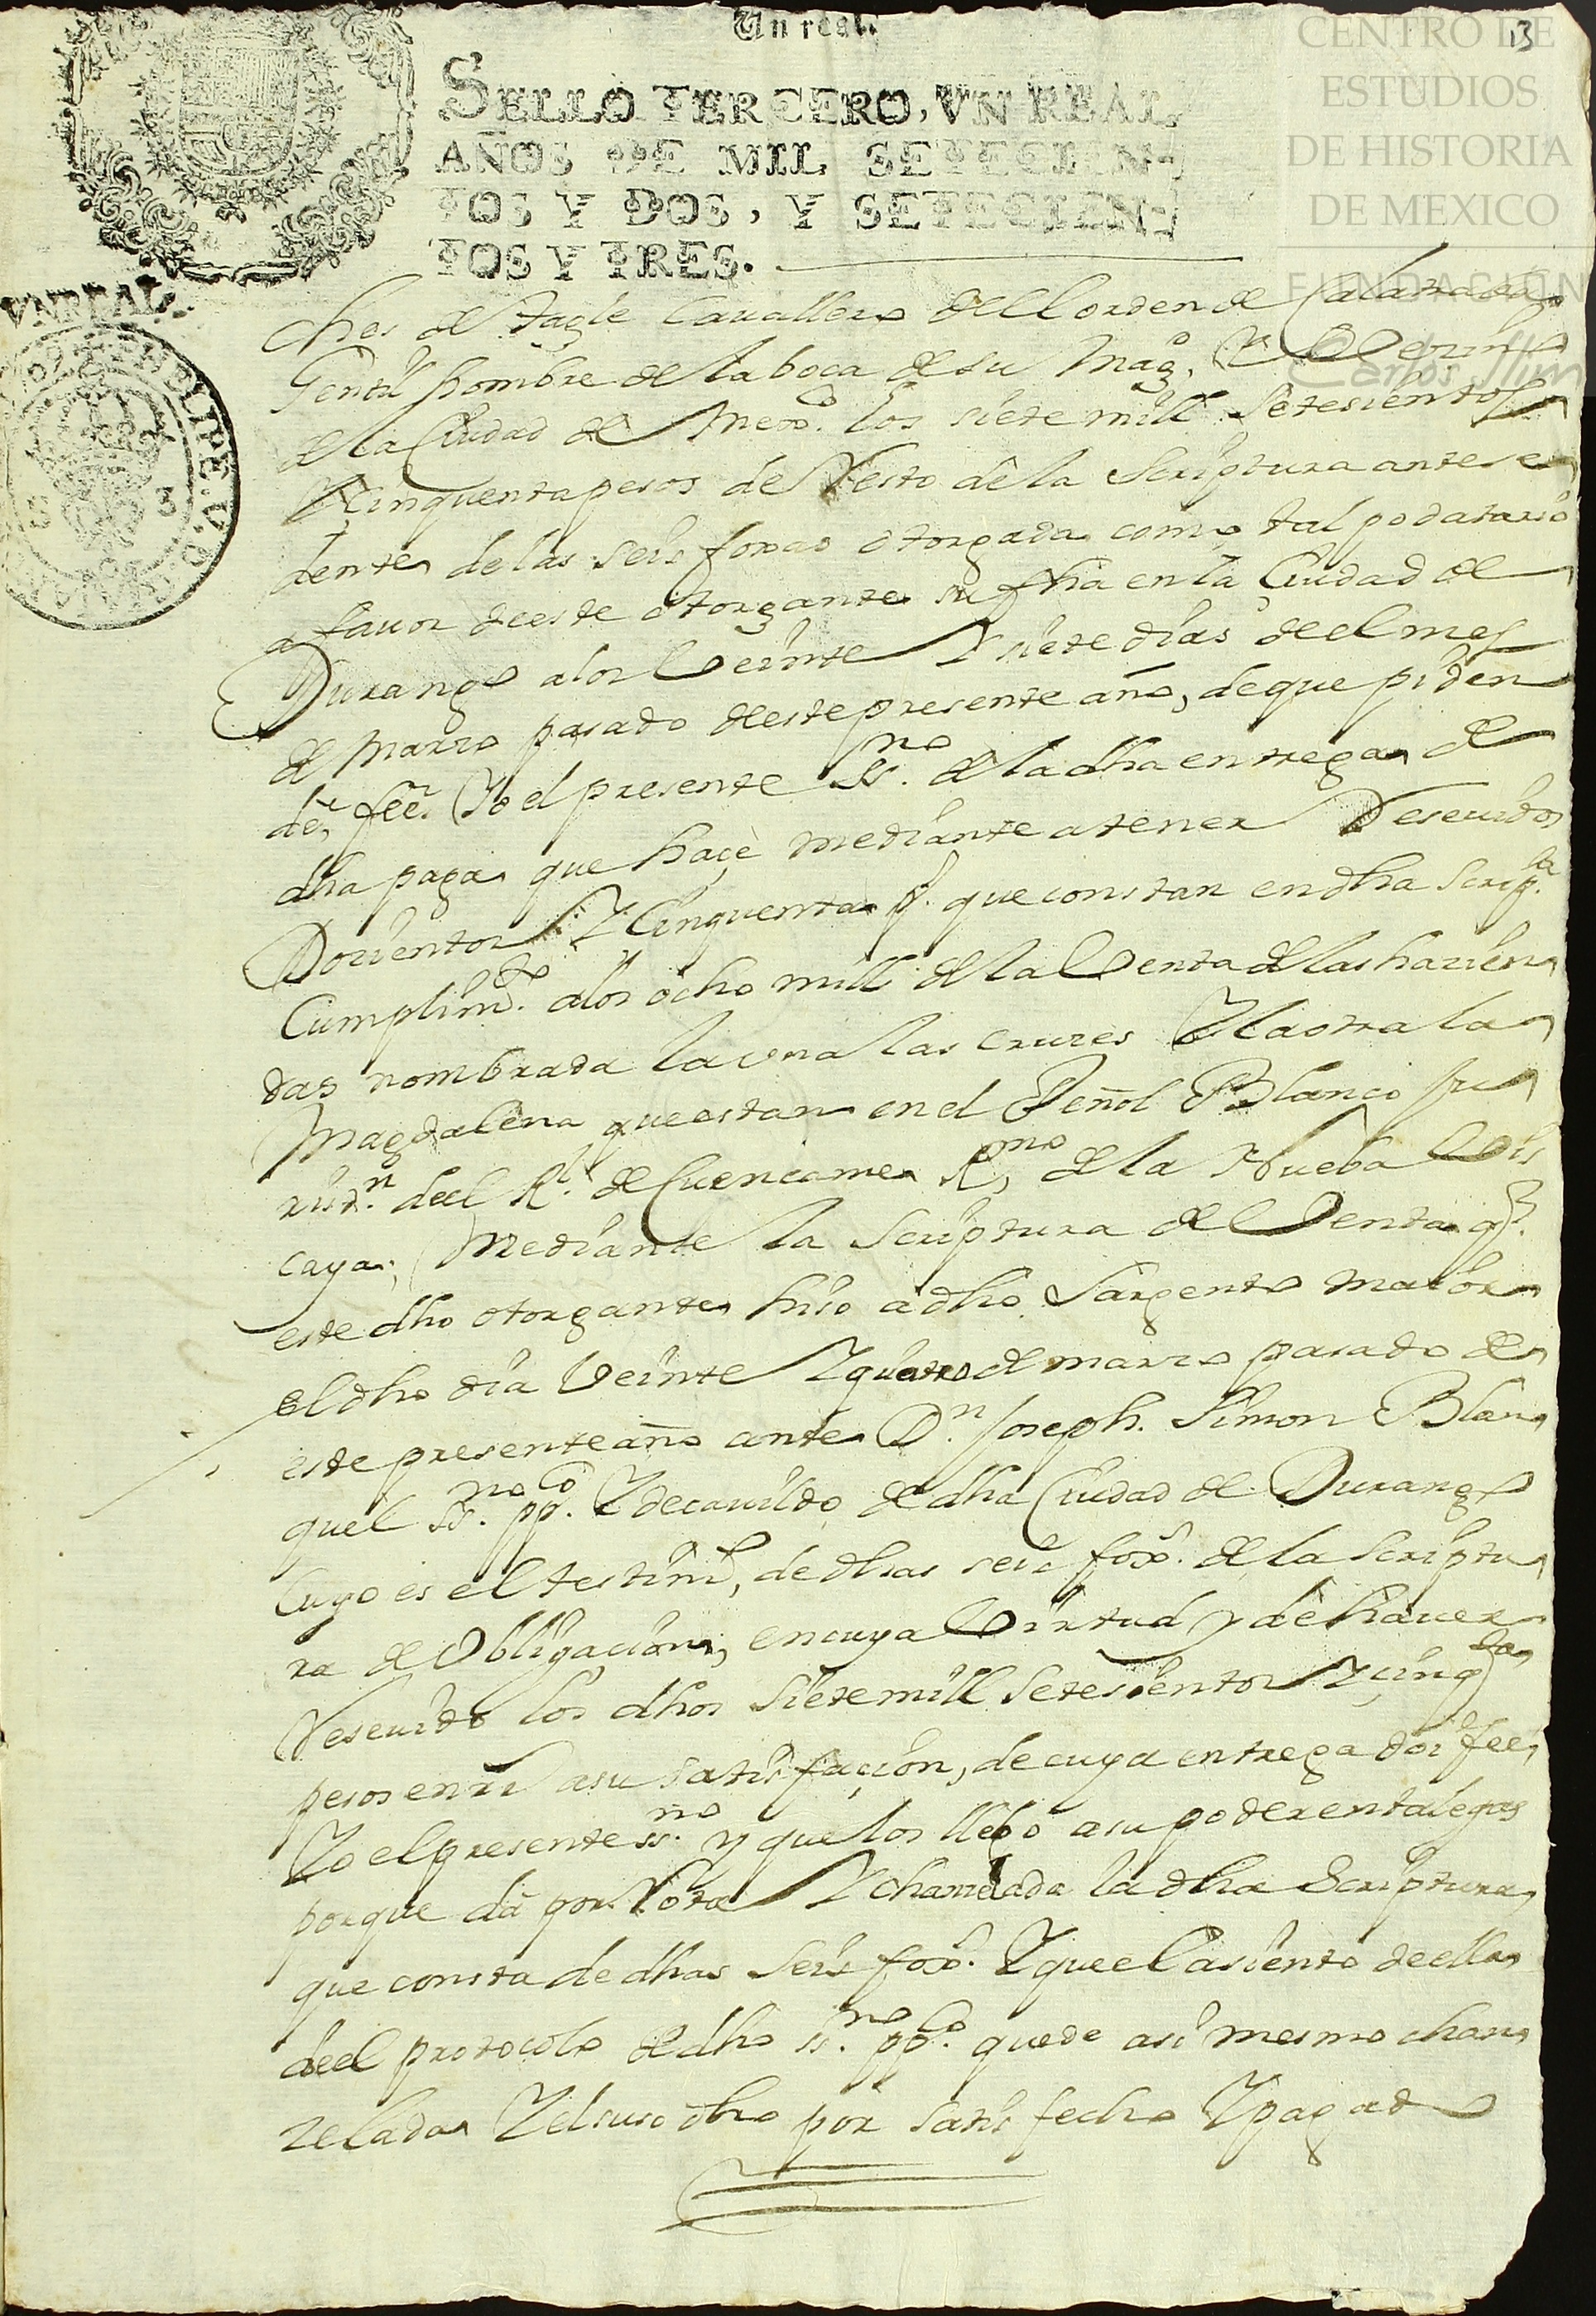 Un real.
13
SELLO TERCERO, VN REAL
AÑOS DE MIL SETECIEN-
TOS Y DOS, Y SETECIEN-
TOS Y TRES.
CENTRO DE
ESTUDIOS
DE HISTORIA
DE MEXICO
FUNDACION
Carlos Slim
VN REAL.
ches de Tagle Cauallero dell orden de Calatraua
Gentil hombre de la boca de su Magd. Y Vezino
de la Ciudad de Mexco. los siete mill Setesientos
Y Cinquenta pesos de Resto de la Scriptura antese
dente de las seis foxas otorgada como tal podatario
a fauor de este otorgante su fha en la Ciudad de
Durango a los Veinte Y siete dias de el mes
de Marzo pasado de este presente año, de que piden
de fee. Yo el presente ssno. de la dha entrega de
dha paga que haçe mediante a tener Reseuidos
Dozientos Y Cinquenta ps. que constan en dha Scripra.
Cumplimto. a los ocho mill de la Venta de las hazien
das nombrada la una las cruzes Y la otra la
Magdalena que estan en el Peñol Blanco Ju
risdn. deel Rl. de Cuencame Rno de la Nueba Vis
caya; Mediante la Scriptura de Venta q.
este dho otorgante hiso a dho Sargento maior
el dho dia Veinte Y quatro de marzo pasado de
este presente año ante Dn. Joseph. Simon Blan
quel ssno. ppco. Y de cauildo de dha Ciudad de Durango
Cuyo es el testimo, de dhas seis fox. de la Scriptu
ra de Obligacion; en cuya Virtud y de hauer
Reseuido los dhos siete mill Setesientos Y cinqta
pesos en rs a su satisfaçion, de cuya entrega doi fee,
Yo el presente ssno. y que los llebó a su poder en talegas
porque dá por Rota Y chanselada la dha Scriptura,
que consta de dhas Seis fox. Y que el asiento de ella
deel protocolo de dho ssno. ppco. quede asi mesmo chan
zelada Y el suso dho por satisfecho Y pagado